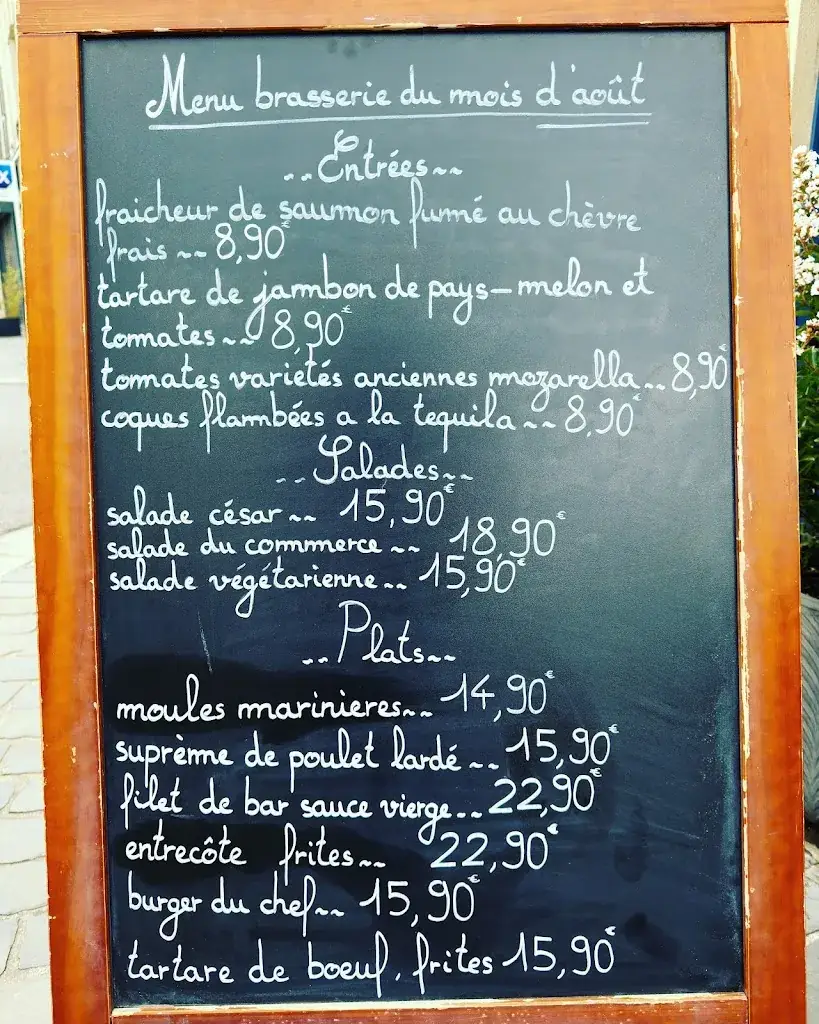 Menu brasserie du mois d'août
~~Entrées~~
fraicheur de saumon fumé au chèvre
frais ~~ 8,90€
tartare de jambon de pays-melon et
tomates~~ 8,90€
tomates variétés anciennes mozarella~~ 8,90€
coques flambées a la tequila~~ 8,90€
~~Salades~~
salade césar~~ 15,90€
salade du commerce~~ 18,90€
salade végétarienne~~ 15,90€
~~Plats~~
moules marinieres~~ 14,90€
suprème de poulet lardé~~ 15,90€
filet de bar sauce vierge~~ 22,90€
entrecôte frites~~ 22,90€
burger du chef~~ 15,90€
tartare de boeuf, frites 15,90€